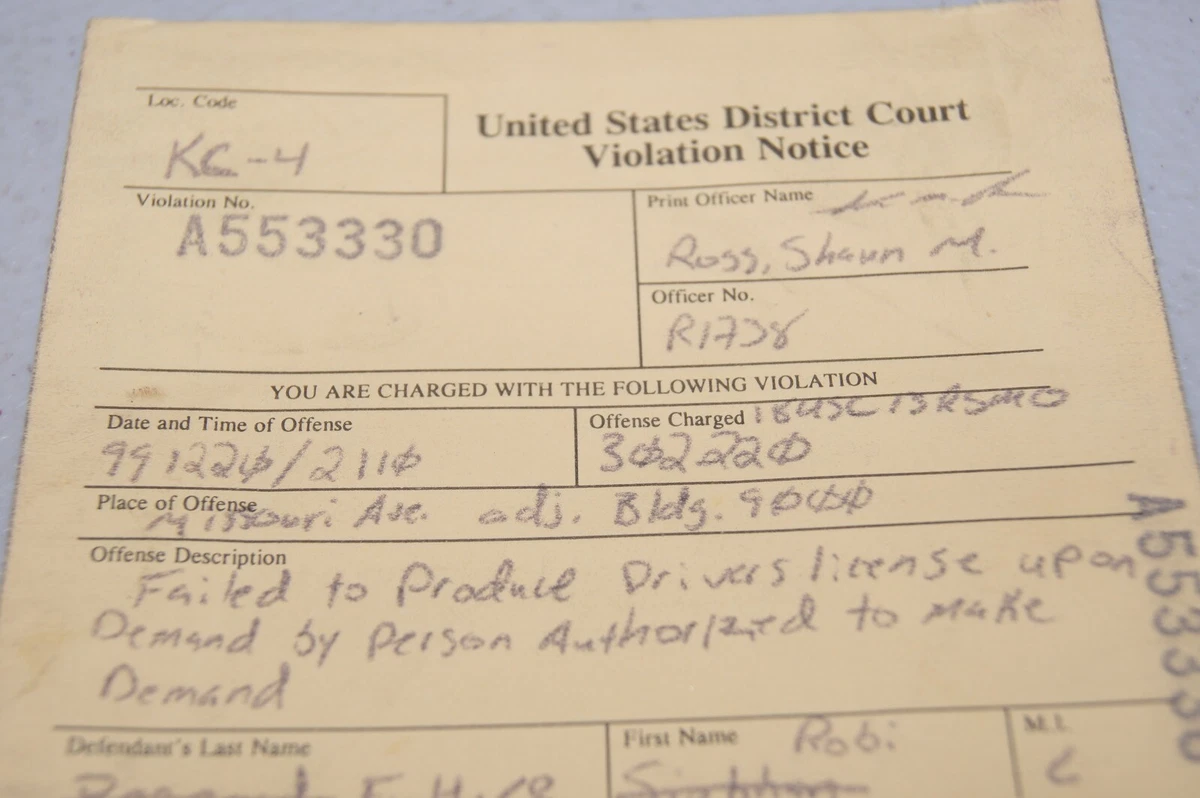 Loc. Code
KC-4
United States District Court
Violation Notice
Violation No.
A553330
Print Officer Name
Ross, Shawn M.
Officer No.
R1738
YOU ARE CHARGED WITH THE FOLLOWING VIOLATION
Date and Time of Offense
99122Ø/211Ø
Offense Charged 18USC13RSMO
3Ø222Ø
Place of Offense
Missouri Ave. adj. Bldg. 9ØØØ
Offense Description
Failed to Produce Drivers license upon
Demand by Person Authorized to Make
Demand
A553330
Defendant's Last Name
First Name Robi
M.I.
C